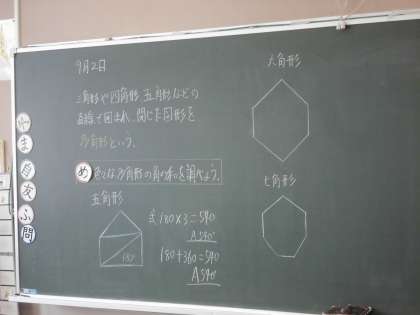 9月2日
三角形や四角形 五角形などの
直線で囲まれ、閉じた図形を
多角形という。
め いろいろな多角形の角の和を調べよう。
五角形
式 180×3=540
A 540°
180+360=540
A 540°
180°
六角形
七角形
や
ま
友
ふ
問